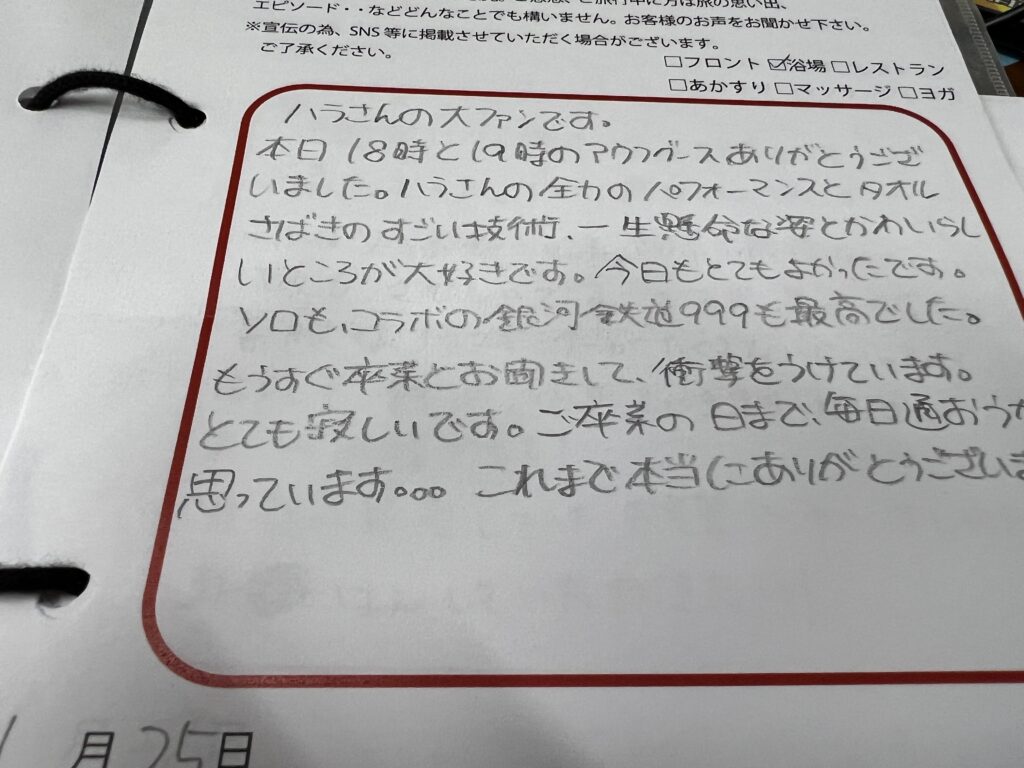 エピソード・・などどんなことでも構いません。お客様のお声をお聞かせ下さい。
※宣伝の為、SNS等に掲載させていただく場合がございます。
ご了承ください。
□フロント ☑浴場 □レストラン
□あかすり □マッサージ □ヨガ
ハラさんの大ファンです。
本日18時と19時のアウフグースありがとうござ
いました。ハラさんの全力のパフォーマンスとタオル
さばきのすごい技術、一生懸命な姿とかわいらし
いところが大好きです。今日もとてもよかったです。
ソロも、コラボの銀河鉄道999も最高でした。
もうすぐ卒業とお聞きして、衝撃をうけています。
とても寂しいです。ご卒業の日まで、毎日通おうか
思っています。。。 これまで本当にありがとうございま
月25日